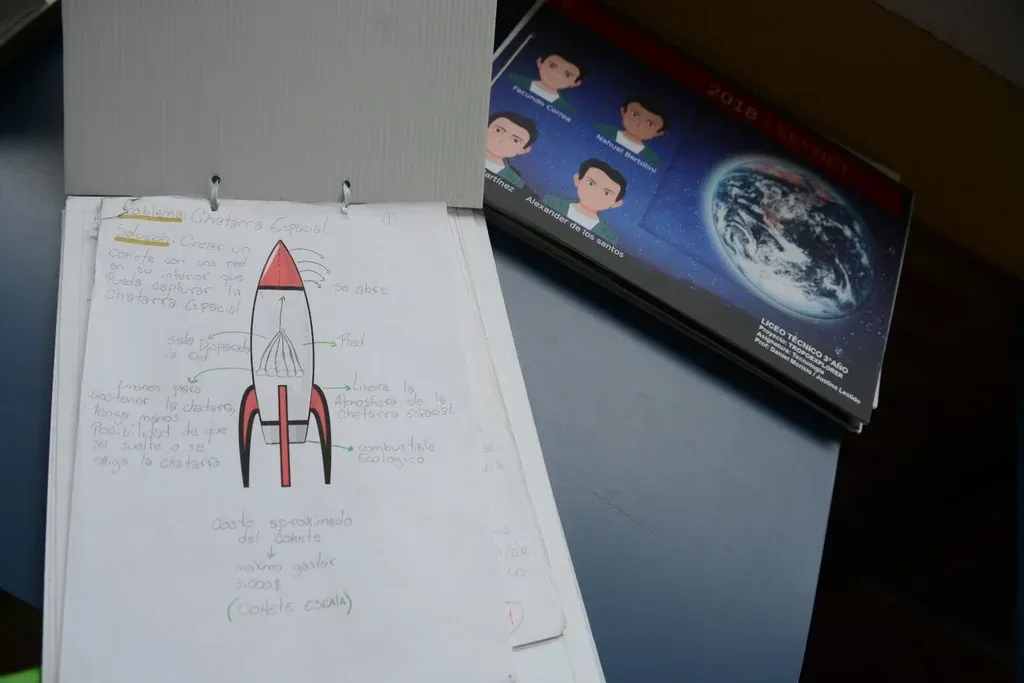 Problema: Chatarra Espacial
Solución: Crear un
cohete con una red
en su interior que
Pueda capturar la
Chatarra Espacial
se abre
sale Disparada
la Red
Red
Imanes para
sostener la chatarra,
tenga menos
Posibilidad de que
se suelte o se
caiga la chatarra
Libera la
Atmosfera de la
chatarra espacial.
combustible
Ecologico
Costo aproximado
del cohete
maximo gastar
3.000$
(COHETE ESCALA)
1
2018
Facundo Correa
Nahuel Bertolini
artínez
Alexander de los santos
LICEO TÉCNICO 3°AÑO
Proyecto: TROPOEXPLORES
Asignatura: Tecnología
Prof: Daniel Morisio / Justino Lesildo